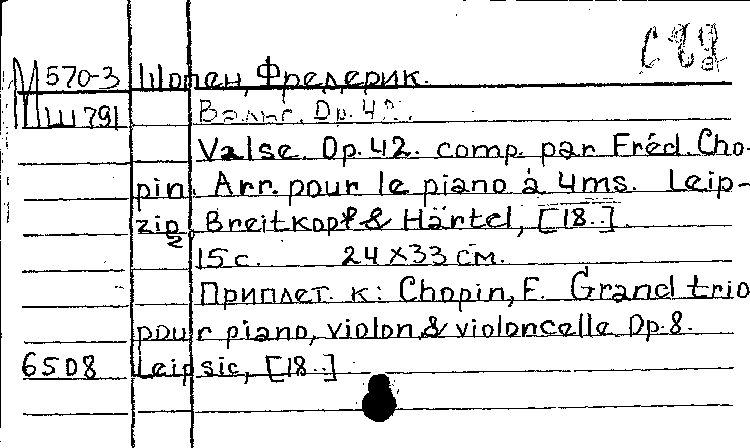 М 570-3 Шопен, Фредерик.
Ш 791 Вальс. Op. 42.
Valse. Op. 42. comp. par Fréd. Cho-
pin. Arr. pour le piano à 4 ms. Leip-
zig, Breitkopf & Härtel, [18..]
15 с. 24 x 33 см.
Приплет. к: Chopin, F. Grand trio
pour piano, violon & violoncelle Op. 8.
6508 Leipsic, [18..]